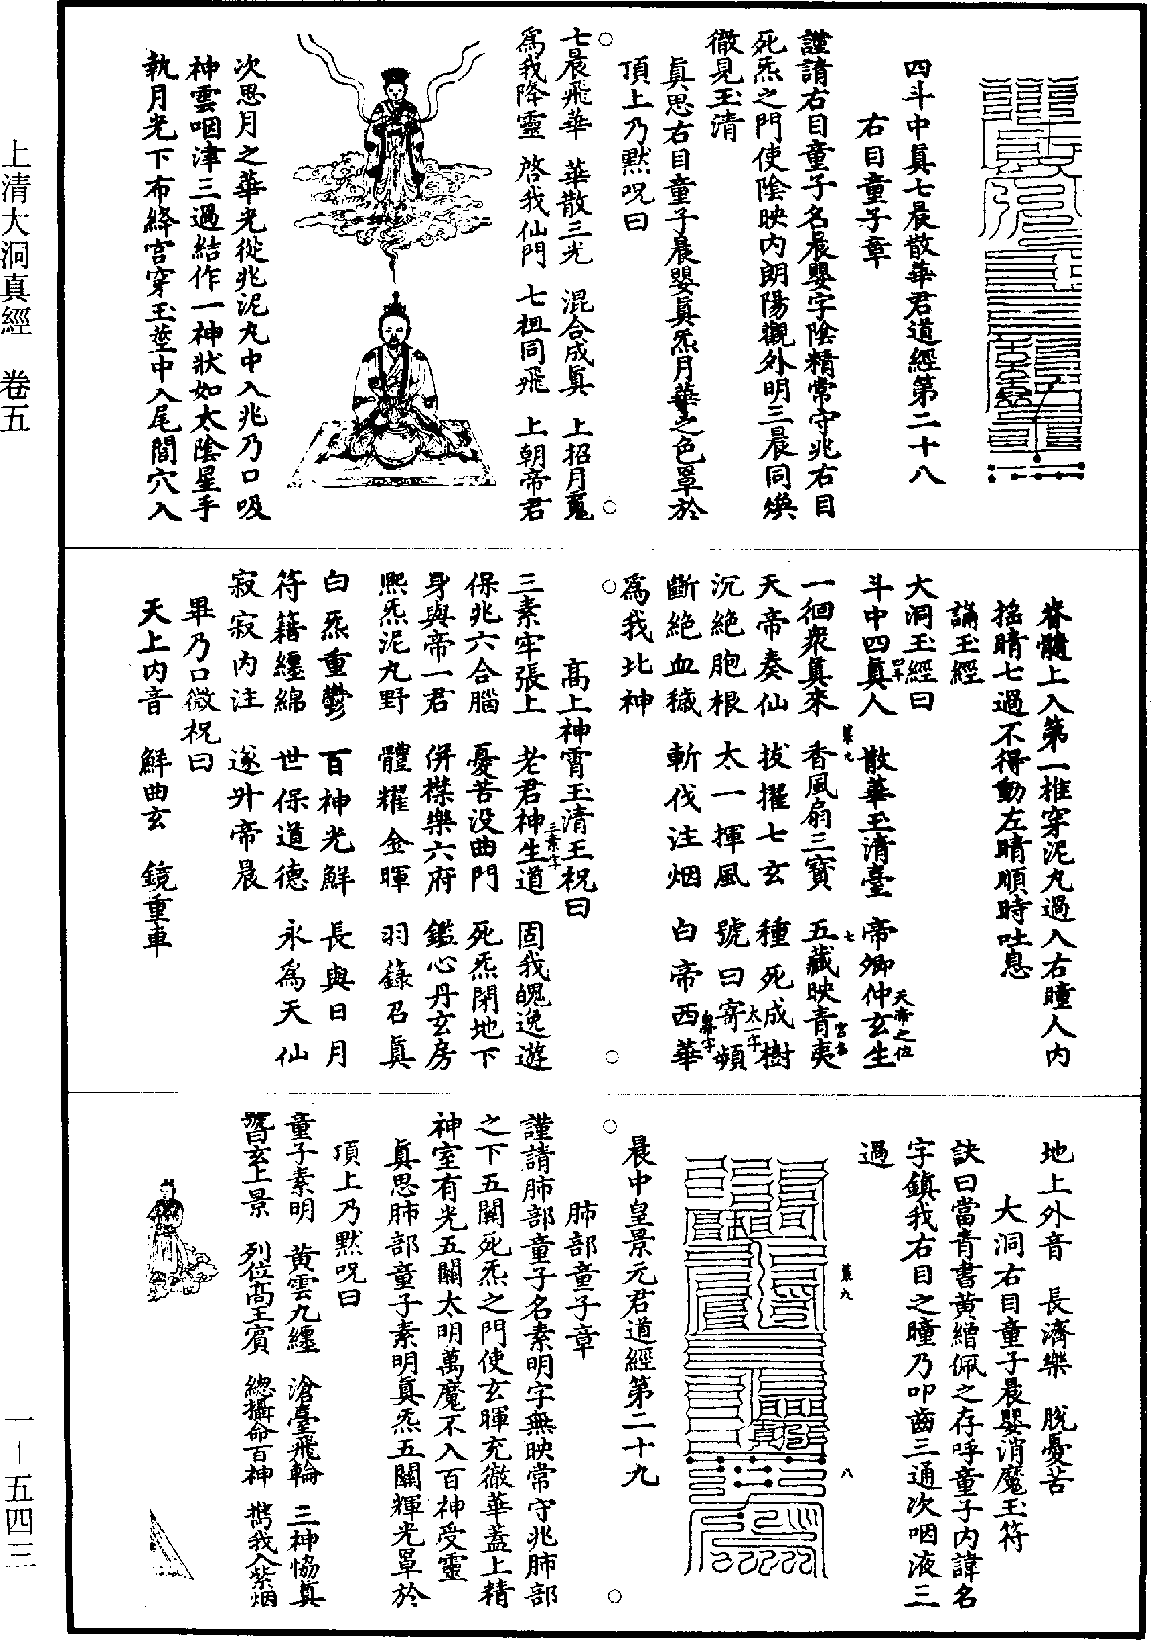 上清大洞真經　卷五
四斗中真七晨散華君道經第二十八
右目童子章
謹請右目童子名晨嬰字陰精常守兆右目
死炁之門使陰映內朗陽觀外明三晨同煥
徹見玉清
真思右目童子晨嬰真炁月華之色罩於
頂上乃默呪曰
七晨飛華　華散三光　混合成真　上招月䰟
爲我降靈　啓我仙門　七祖同飛　上朝帝君
次思月之華光從兆泥丸中入兆乃口吸
神雲咽津三過結作一神狀如太陰星手
執月光下布絳宮穿玉莖中入尾閭穴入
脊髓上入第一椎穿泥丸過入右瞳人內
搖睛七過不得動左睛順時吐息
誦玉經
大洞玉經曰
斗中四真人　散華玉清臺　帝卿仲玄生
一徊衆真來　香風扇三寶　五藏映青夷
天帝奏仙　拔擢七玄　種死成樹
沉絕胞根　太一揮風　號曰寄頻
斷絕血穢　斬伐注烟　白帝西華
爲我北神
高上神霄玉清王祝曰
三素牢張上　老君神生道　固我魄逸遊
保兆六合腦　憂苦没曲門　死炁閉地下
身與帝一君　併襟樂六府　鑑心丹玄房
熙炁泥丸野　體耀金暉　羽錄召真
白炁重鬱　百神光鮮　長與日月
符籍纏綿　世保道德　永爲天仙
寂寂內注　遂升帝晨
畢乃口微祝曰
天上內音　鮮曲玄　鏡重車
地上外音　長濟樂　脫憂苦
大洞右目童子晨嬰消魔玉符
訣曰當青書黃繒佩之存呼童子內諱名
字鎮我右目之瞳乃叩齒三通次咽液三
過
晨中皇景元君道經第二十九
肺部童子章
謹請肺部童子名素明字無映常守兆肺部
之下五關死炁之門使玄暉充徹華蓋上精
神室有光五關太明萬魔不入百神受靈
真思肺部童子素明真炁五關輝光罩於
頂上乃默呪曰
童子素明　黃雲九纏　滄臺飛輪　三神恊真
玄上景　列位高玉賓　總攝命百神　擕我入紫烟
一—五四三